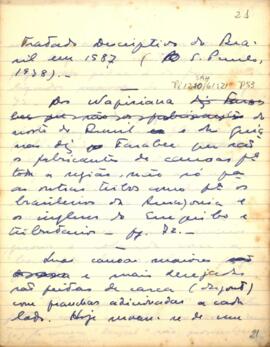 21
Tratado Descriptivo do Bra-
sil em 1587 ( S. Paulo,
1938). —
Os Wapisiana
norte do Brasil e das guia-
nas diz Farabee que são
os fabricantes de canoas pª
toda a região, não só pª
as outras tribos como pª os
brasileiros da Amazonia e
os ingleses do Essequibo e
tributarios — pg. 72. —
Suas canoas maiores
e mais desejadas
são feitas de casca (dugout)
com pranchas adicionadas a cada
lado. Hoje usam-se de um
21